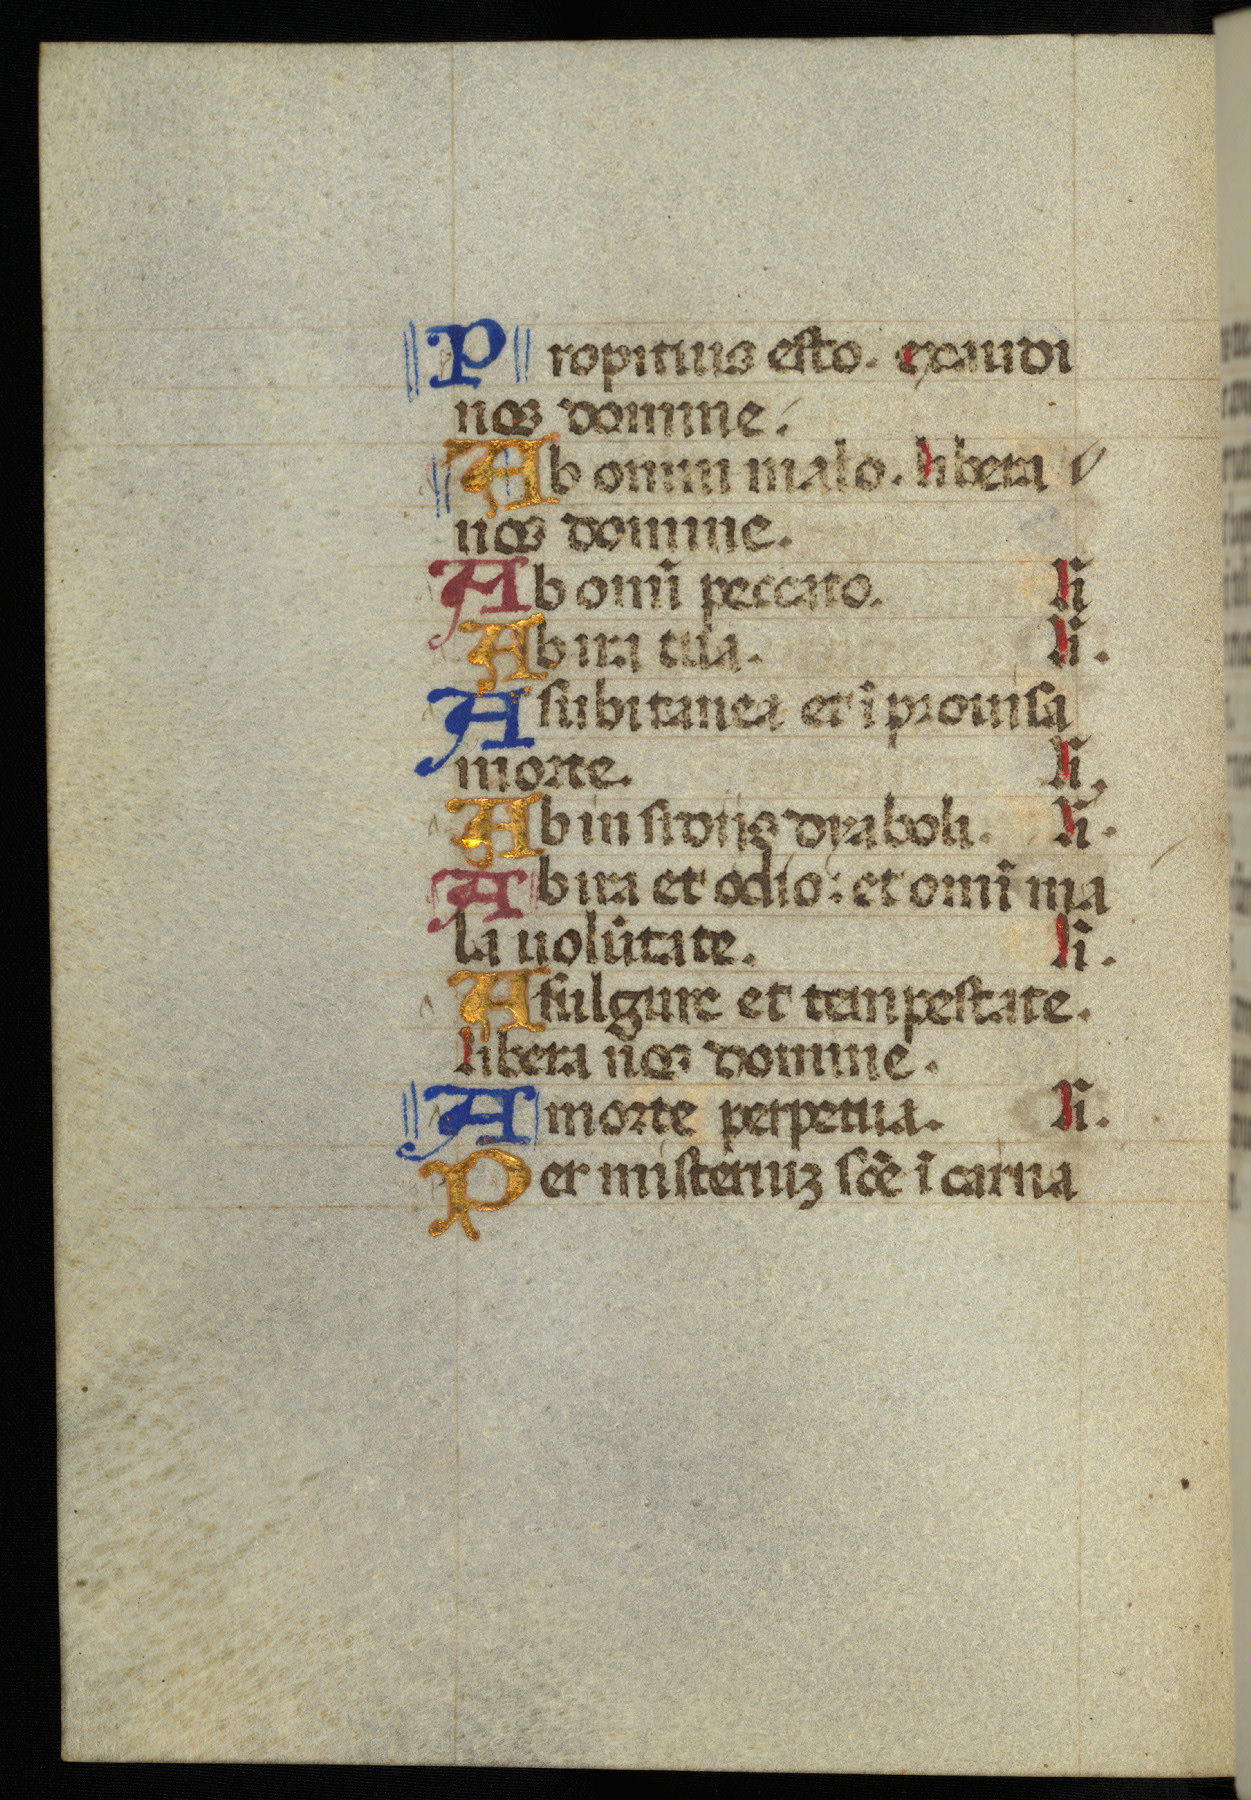 Propitius esto. exaudi
nos domine.
Ab omni malo. libera
nos domine.
Ab omī peccato. li̅
Ab ira tua. li̅.
A subitanea et īprouisa
morte. li̅.
Ab insidijs dyaboli. li̅.
Ab ira et odio: et omī ma
la uolūtate. li̅.
A fulgure et tempestate.
libera nos domine.
A morte perpetua. li̅.
Per misteriuz scē īcarna